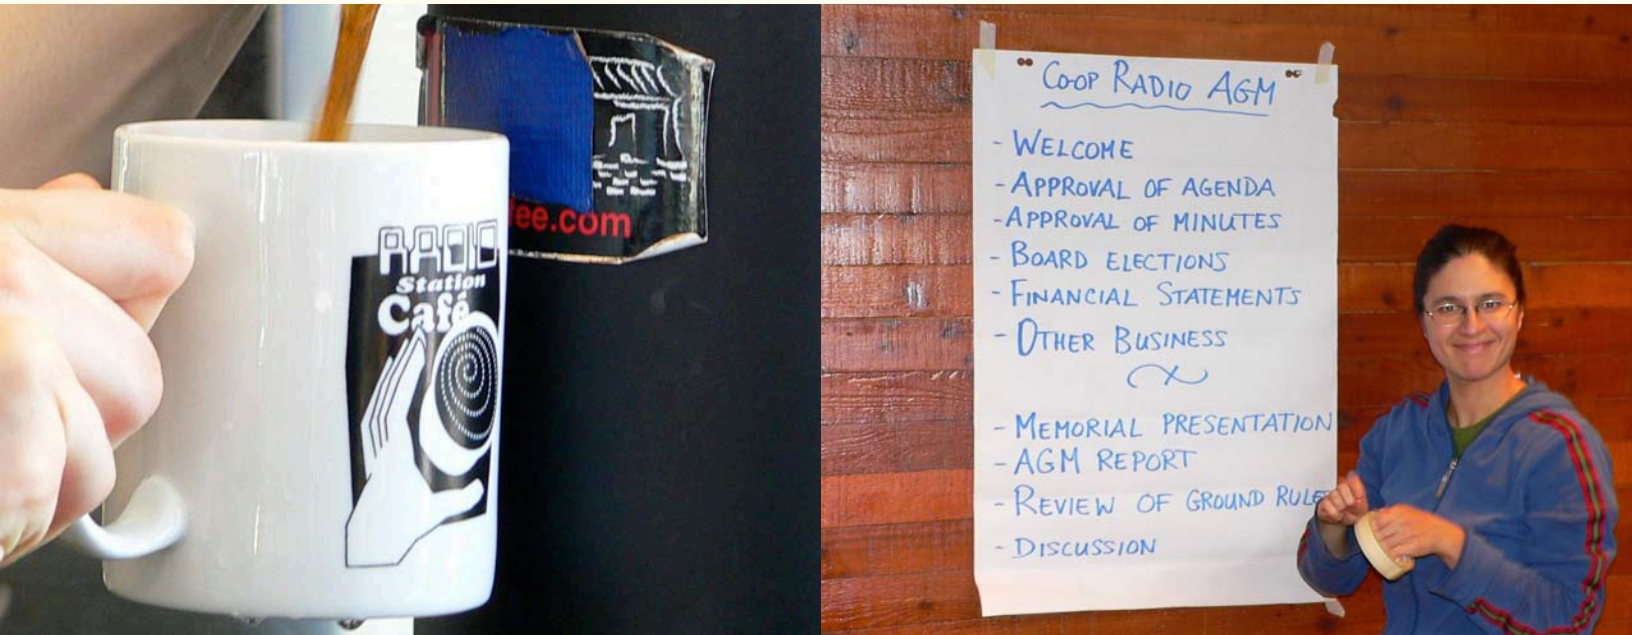 RADIO
Station
Café
fee.com
CO-OP RADIO AGM
- WELCOME
- APPROVAL OF AGENDA
- APPROVAL OF MINUTES
- BOARD ELECTIONS
- FINANCIAL STATEMENTS
- OTHER BUSINESS
- MEMORIAL PRESENTATION
- AGM REPORT
- REVIEW OF GROUND RULES
- DISCUSSION